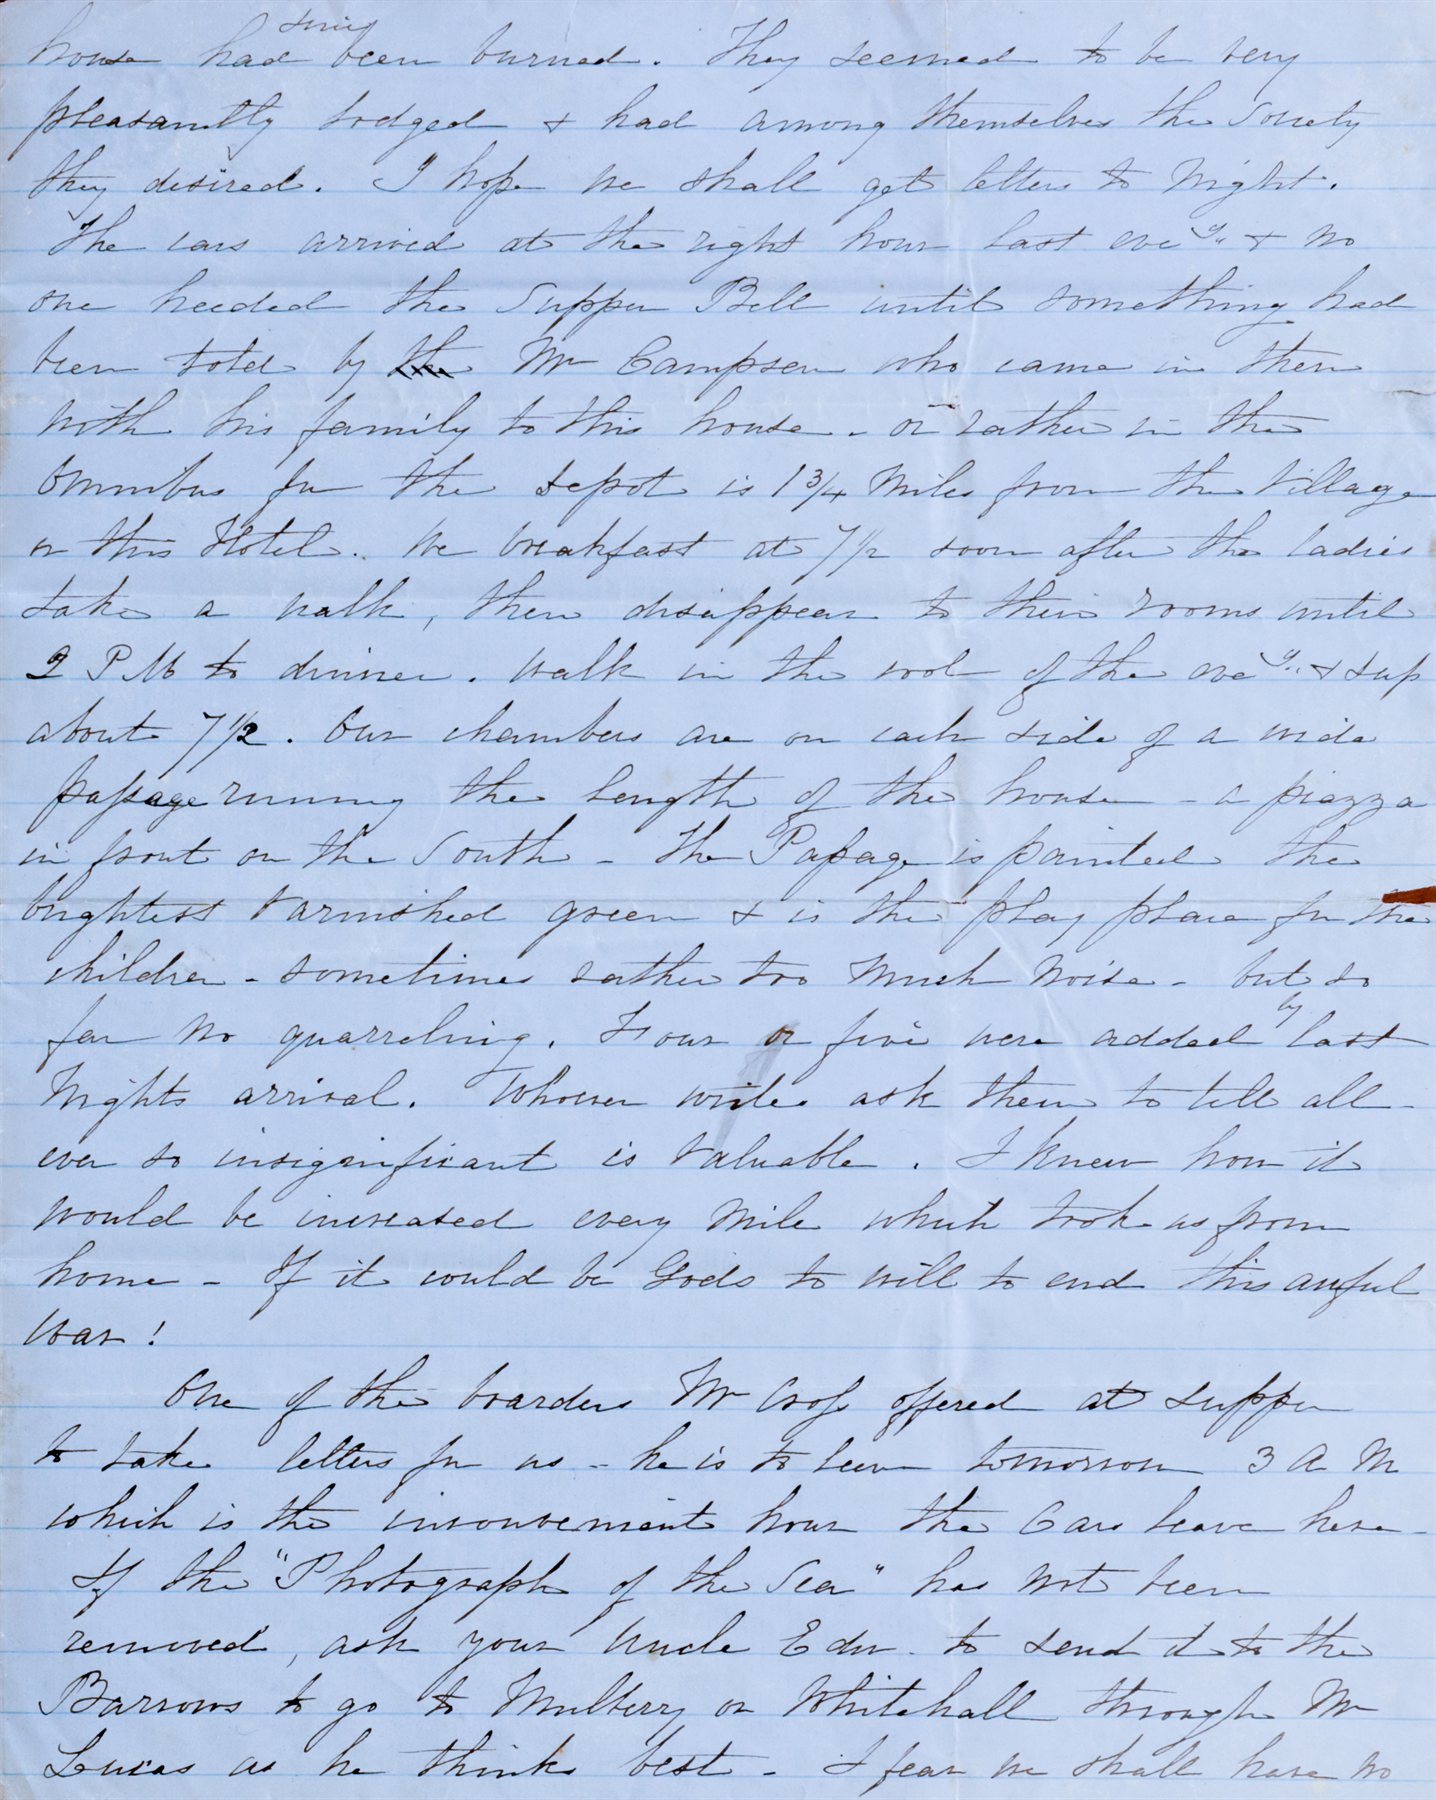 house had since been burned. They seemed to be very
pleasantly lodged & had among themselves the Society
they desired. I hope we shall get letters to Night.
The cars arrived at the right hour last eve'g & no
one heeded the Supper Bell until something had
been told by the Mr Campsen who came in then
with his family to this house - or rather in the
Omnibus for the depot is 1 3/4 Miles from the Village
or this Hotel. We breakfast at 7 1/2 soon after the ladies
take a walk, then disappear to their rooms until
2 P M to dinner. Walk in the cool of the eve'g & sup
about 7 1/2. Our chambers are on each side of a wide
passage running the length of the house - a piazza
in front on the South - The Passage is painted the
brightest varnished green & is the play place for the
children - sometimes rather too Much Noise - but so
far no quarreling. Four or five were added by last
Nights arrival. Whoever writes ask them to tell all -
ever so insignificant is valuable. I knew how it
would be increased every Mile which took us from
home - If it could be Gods to will to end this awful
war!
One of the boarders Mr Cross offered at supper
to take letters for us - he is to leave tomorrow 3 A M
which is the inconvenient hour the Cars leave here -
If the "Photograph of the Sea" has not been
removed, ask your Uncle Edw. to send it to the
Barrows to go to Mulberry or Whitehall through Mr
Lucas as he thinks best - I fear we shall have no